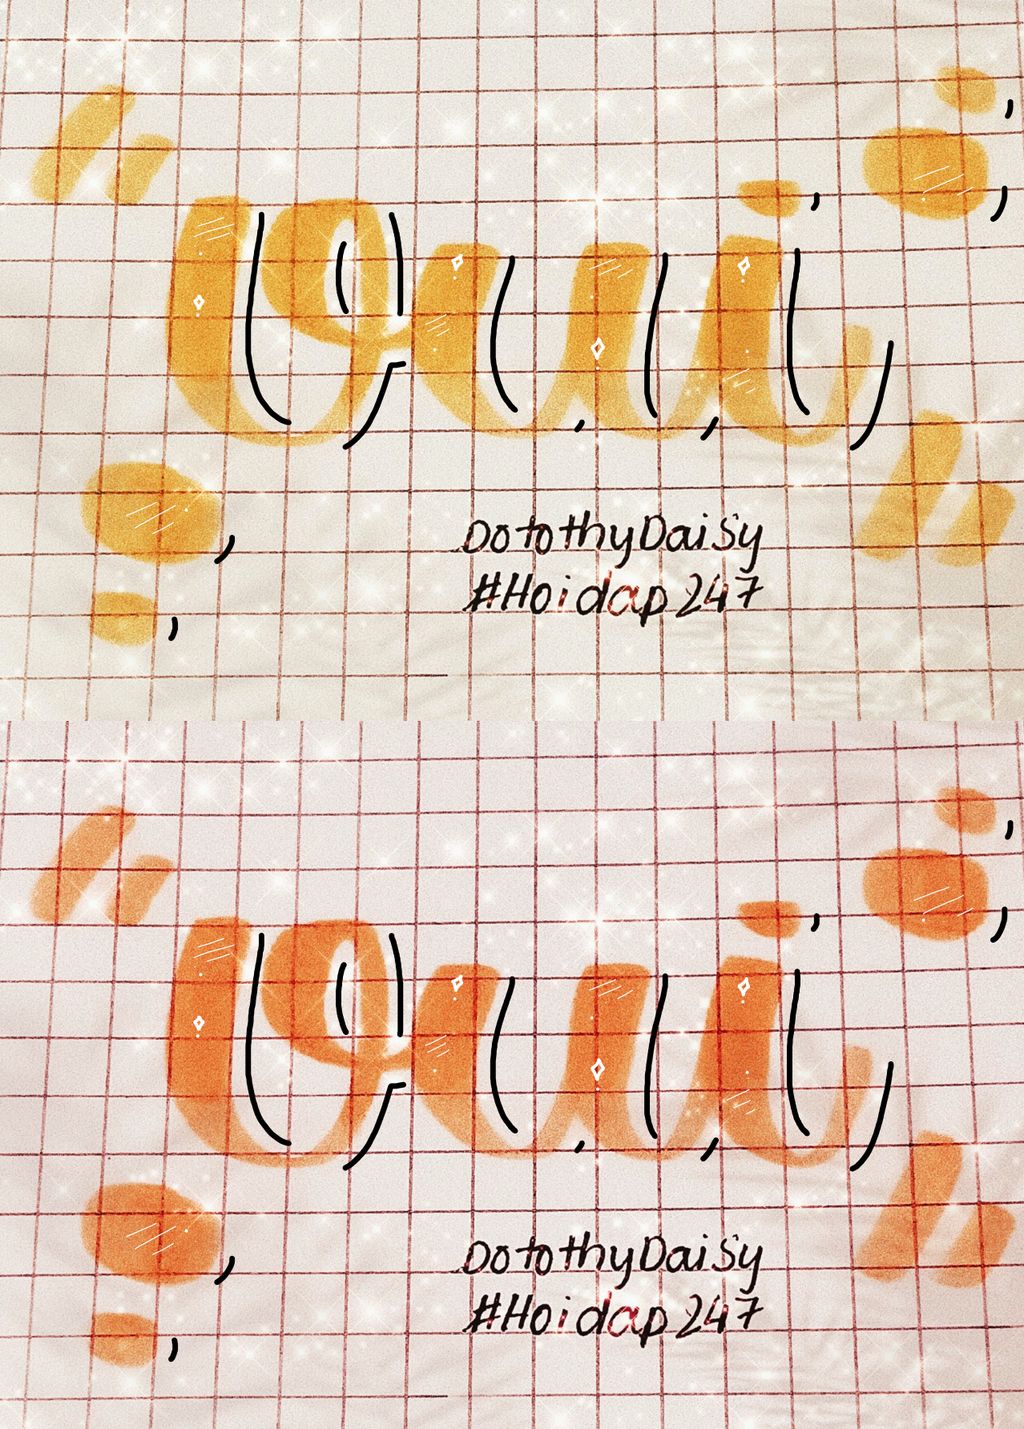 Oui
DotothyDaisy
#Hoidap247
Oui
DotothyDaisy
#Hoidap247